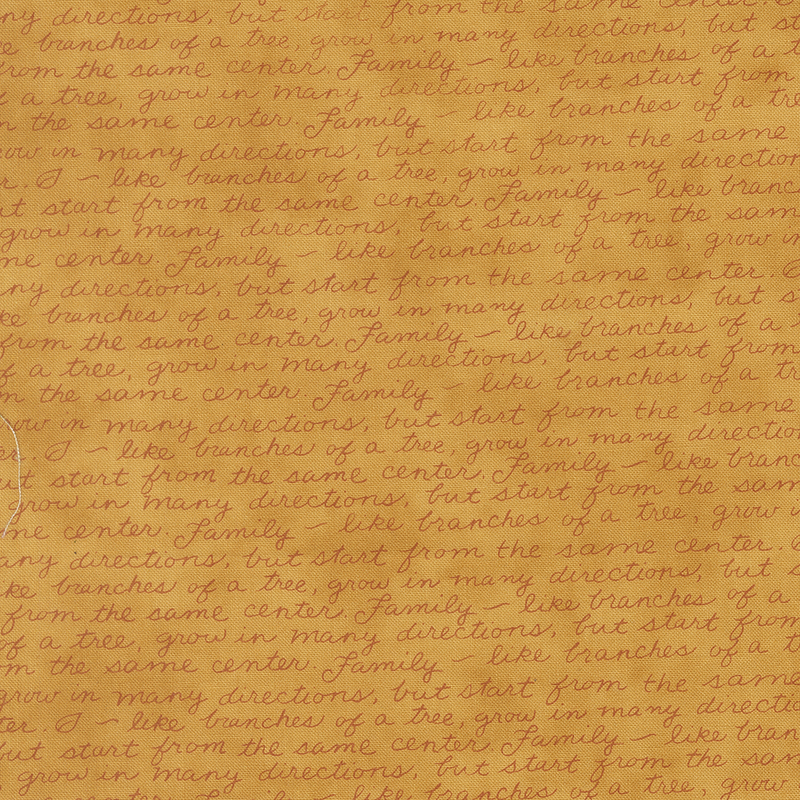 ny directions, but start from the same center.
e branches of a tree, grow in many directions, but st
from the same center. Family – like branches of a t
f a tree, grow in many directions, but start from
n the same center. Family – like branches of a tre
ow in many directions, but start from the same
r. – like branches of a tree, grow in many direction
ut start from the same center. Family – like branc
grow in many directions, but start from the sam
me center. Family – like branches of a tree, grow in
ny directions, but start from the same center.
ke branches of a tree, grow in many directions, but s
from the same center. Family – like branches of a
f a tree, grow in many directions, but start from
m the same center. Family – like branches of a tr
ow in many directions, but start from the same
er. – like branches of a tree, grow in many directio
ut start from the same center. Family – like branc
grow in many directions, but start from the sam
me center. Family – like branches of a tree, grow
any directions, but start from the same center.
ke branches of a tree, grow in many directions, but s
from the same center. Family – like branches of a
of a tree, grow in many directions, but start from
om the same center. Family – like branches of a t
grow in many directions, but start from the same
ter. – like branches of a tree, grow in many directio
but start from the same center. Family – like bran
grow in many directions, but start from the sam
center. Family – like branches of a tree, grow